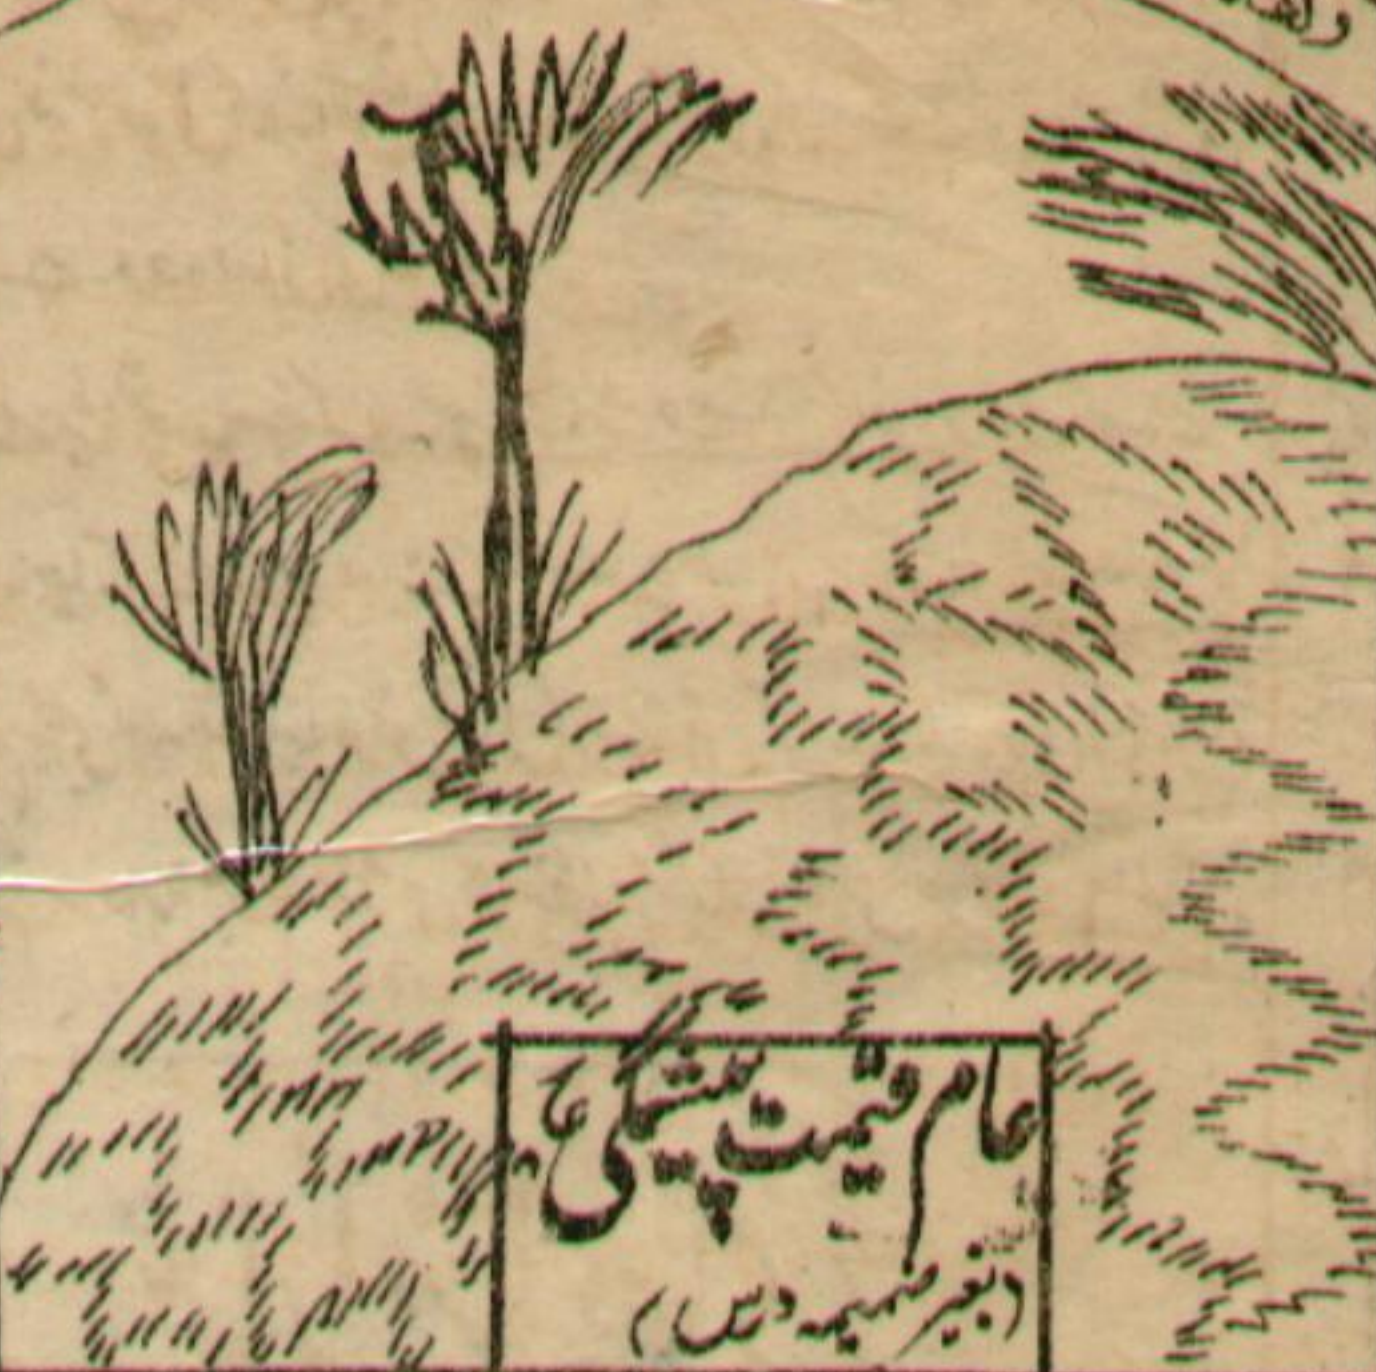 عام قیمت پیشگی ؏
(بغیر ضمیمہ درس)